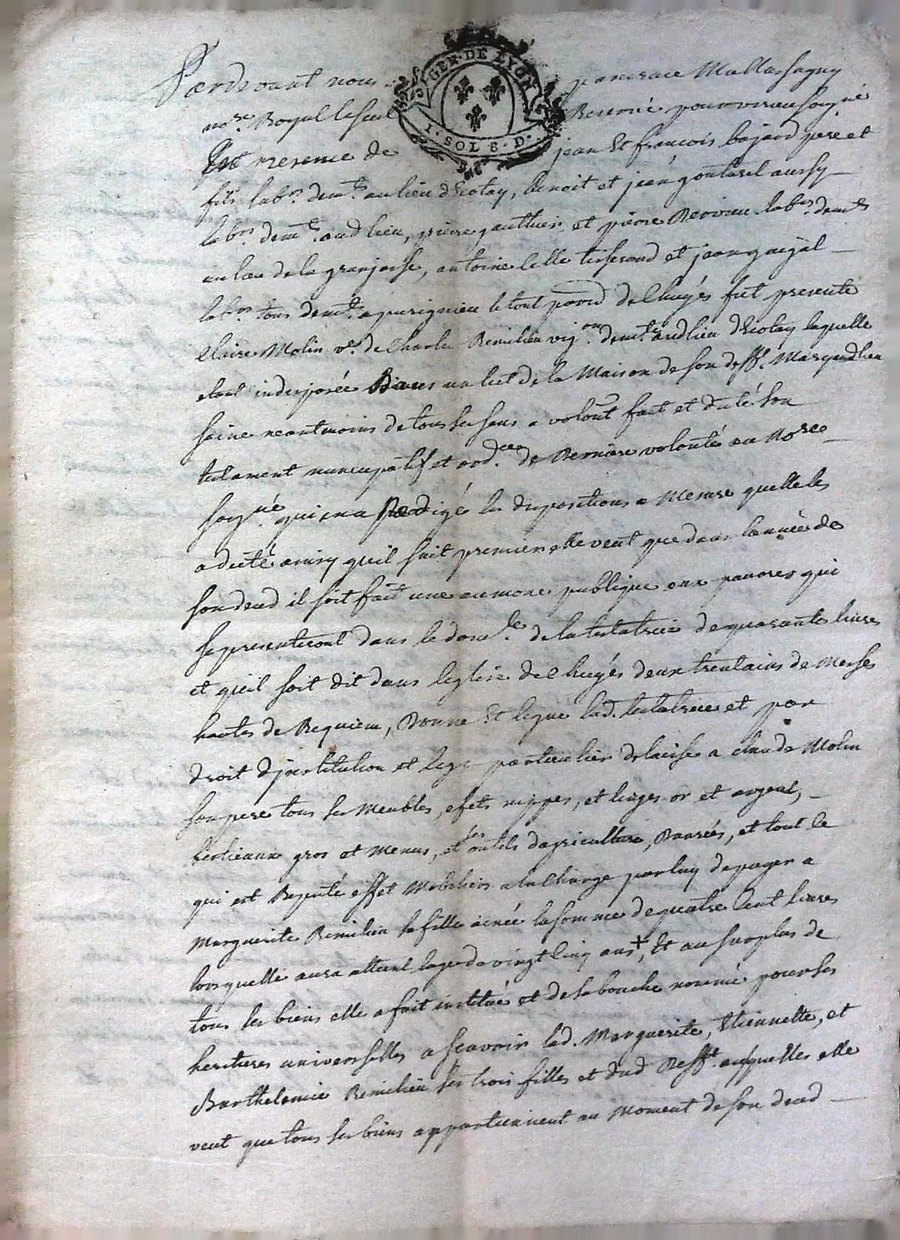 GEN. DE LYON
1. SOL 8. D.
Pardevant nous
no.re Royal reservé pour vieu soigné
En presence de jean et francois bajard pere et
fils lab.rs dem.ts au lieu d'Ecotay, benoit et jean goutarel aussy
lab.rs dem.ts aud lieu, pierre gauthier et pierre lab.r dem.t
au lieu de la granjasse, antoine tisserand et jean
lab.rs tous dem.ts a le tout paroisse de fut presente
Claire Molin v.e de Charle Remilieu vig.on dem.te aud lieu d'Ecotay laquelle
etant indisposée dans un lict de la Maison de son deff.t Mary aud lieu
saine neantmoins de tous ses sens a volont.t fait et dicté son
testament nuncupatif et ord.ce de derniere volonté au no.re
soigné qui en a redigé les dispositions a Mesure quelle les
a dicté ainsy quil suit premier elle veut que dans lannée de
son deced il soit fait une aumone publique aux pauvres qui
se presenteront dans le dom.le de la testatrice de quarante livres
et quil soit dit dans leglise de deux trentains de Messes
hautes de Requiem, Donne et legue lad. testatrice et par
droit d'institution et legs particulier delaisse a claude Molin
son pere tous ses Meubles, efets nippes, et linges or et argent,
bestiaux gros et Menus, et ses outils dagriculture, Danrées, et tout ce
qui est Reputé effet Mobiliers a la Charge par luy de payer a
Marguerite Remilieu sa fille ainée la somme de quatre Cent livres
lorsquelle aura atteint lage de vingt Cinq ans +, Et au surplus de
tous ses biens elle a fait institué et de sa bouche nommé pour ses
heritieres universelles a scavoir lad. Marguerite, Etiennette, et
Barthelemie Remilieu ses trois filles et dud Deff.t ausquelles elle
veut que tous ses biens appartiennent au Moment de son deced